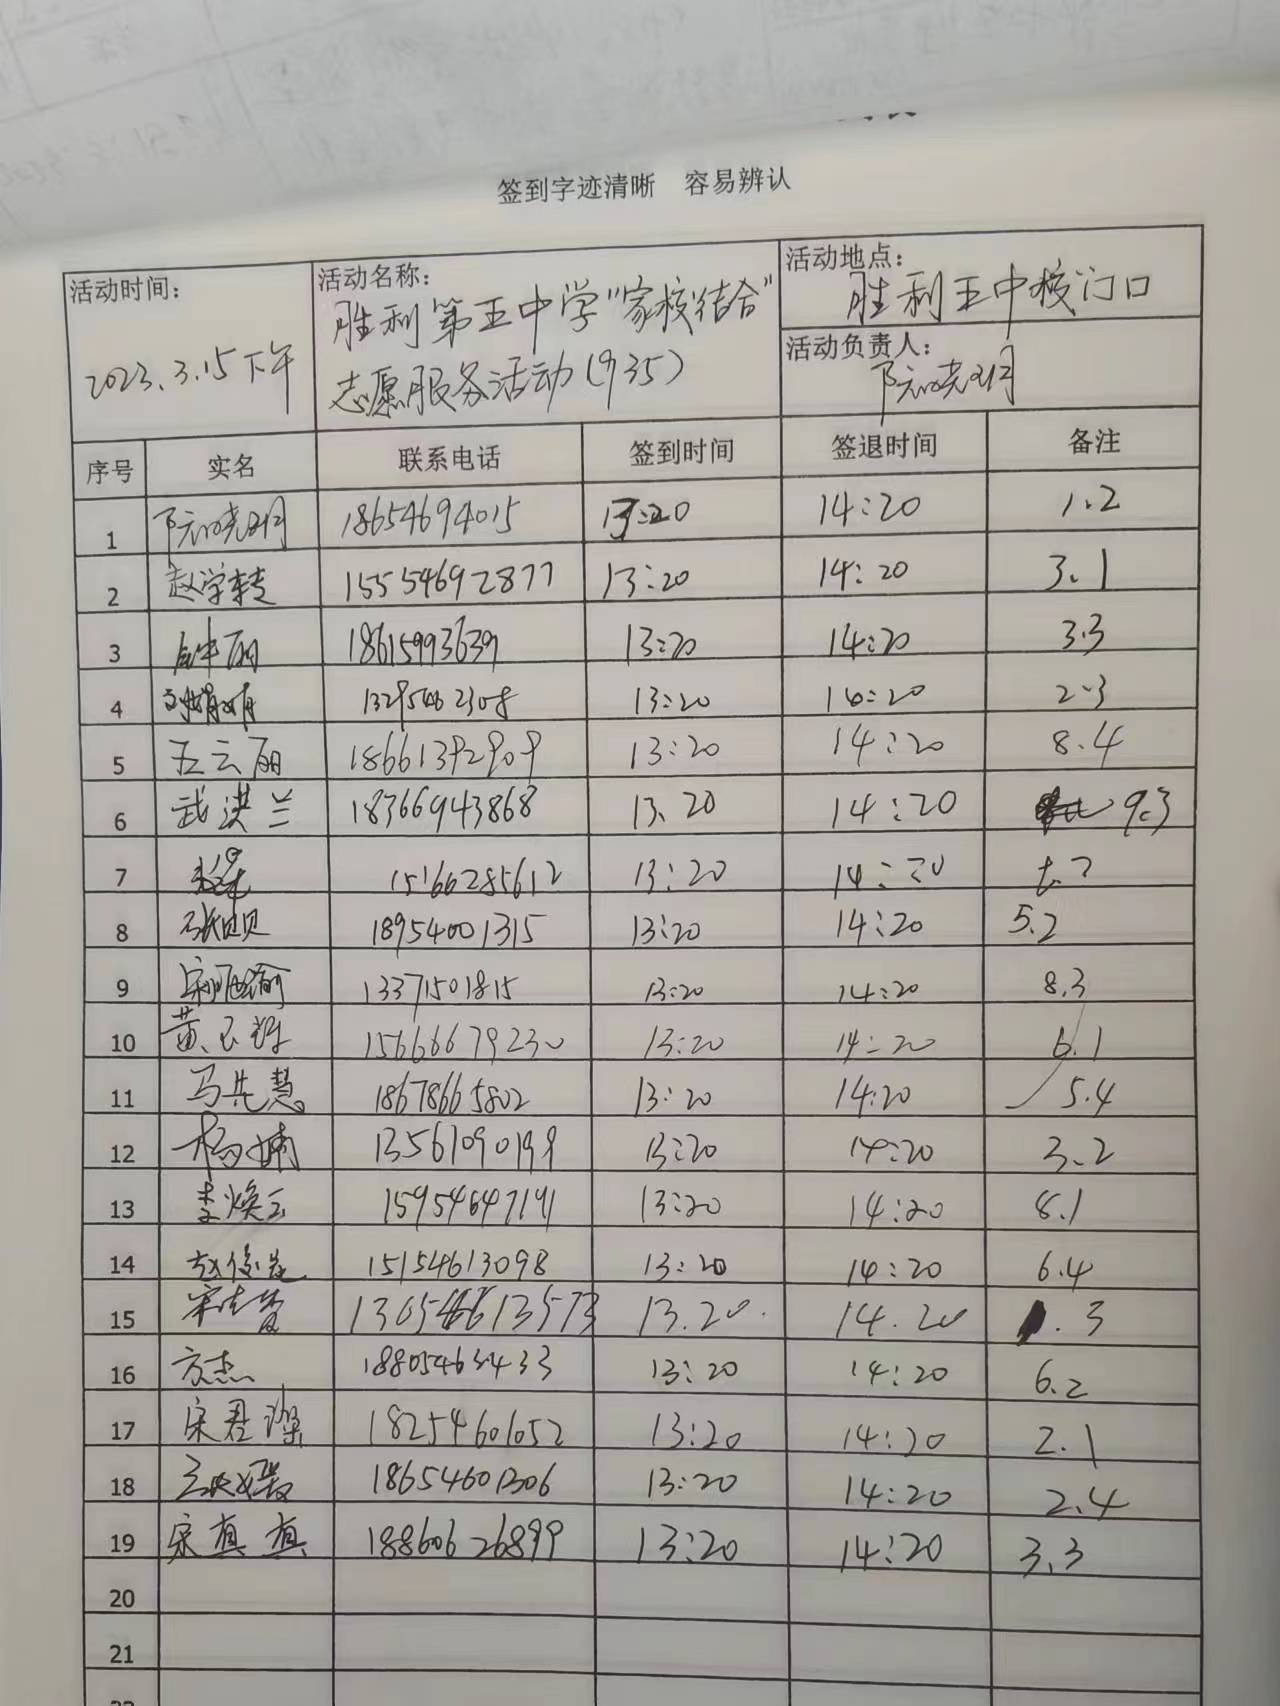 签到字迹清晰 容易辨认
活动时间： 2023.3.15下午
活动名称： 胜利第五中学"家校结合"
志愿服务活动(935)
活动地点： 胜利五中校门口
活动负责人：
序号 实名 联系电话 签到时间 签退时间 备注
1 18654694015 13:20 14:20 1.2
2 赵学转 15554692877 13:20 14:20 3.1
3 钟丽 18615993639 13:20 14:20 3.3
4 13:20 14:20 2.3
5 王云丽 18661392909 13:20 14:20 8.4
6 武洪兰 18366943868 13.20 14:20 9.3
7 15166285612 13:20 14:20
8 张贝贝 18954001315 13:20 14:20 5.2
9 13371501815 13:20 14:20 8.3
10 黄玉 15666679230 13:20 14:20 6.1
11 马先慧 18678665802 13:20 14:20 5.4
12 杨婧 13561090199 13:20 14:20 3.2
13 李焕云 15954647191 13:20 14:20 8.1
14 赵俊 15154613098 13:20 14:20 6.4
15 13.20. 14.20 .3
16 方杰 18805463433 13:20 14:20 6.2
17 宋君 18254601052 13:20 14:20 2.1
18 18654601306 13:20 14:20 2.4
19 宋真真 18860626899 13:20 14:20 3.3
20
21